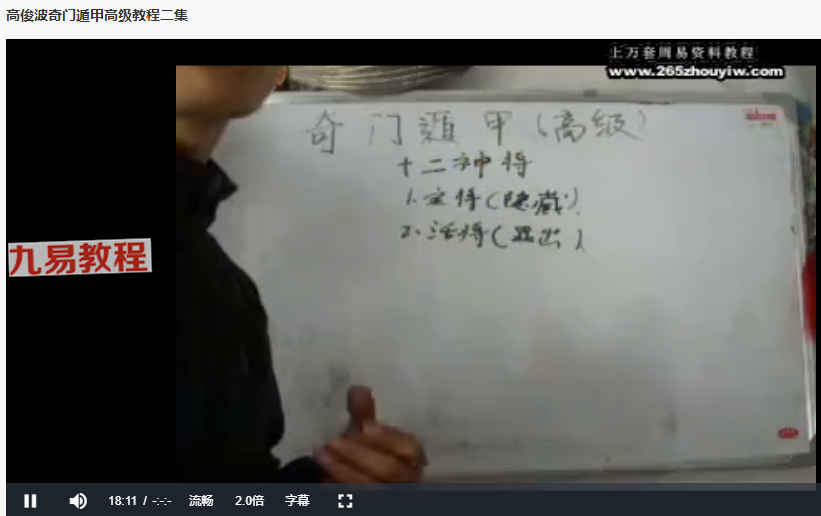 高俊波奇门遁甲高级教程二集
上万套周易资料教程
www.265zhouyiw.com
奇门遁甲(高級)
十二神将
1.定将(隐藏)
2.活将(显出)
九易教程
18:11 / -:-:- 流畅 2.0倍 字幕